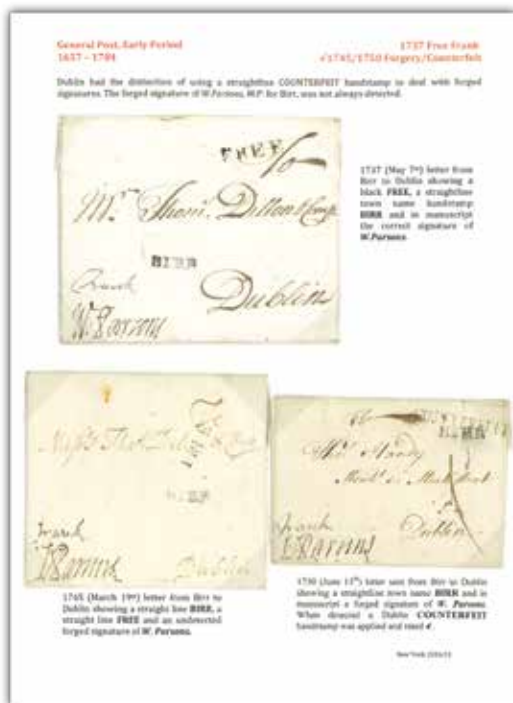 General Post, Early Period
1637 – 1784
1737 Free Frank
1745/1750 Forgery/Counterfeit
Dublin had the distinction of using a straightline COUNTERFEIT handstamp to deal with forged
signatures. The forged signature of W.Parsons, M.P. for Birr, was not always detected.
FREE
Mrs Thoms. Dillon & Comp
BIRR
Dublin
Frank
W. Parsons
1737 (May 7th) letter from
Birr to Dublin showing a
black FREE, a straightline
town name handstamp
BIRR and in manuscript
the correct signature of
W.Parsons.
FREE
BIRR
frank
Parsons
Dublin
1745 (March 19th) letter from Birr to
Dublin showing a straight line BIRR, a
straight line FREE and an undetected
forged signature of W. Parsons.
COUNTERFEIT
BIRR
frank
Parsons
Dublin
1750 (June 15th) letter sent from Birr to Dublin
showing a straightline town name BIRR and in
manuscript a forged signature of W. Parsons.
When detected a Dublin COUNTERFEIT
handstamp was applied and rated
New York